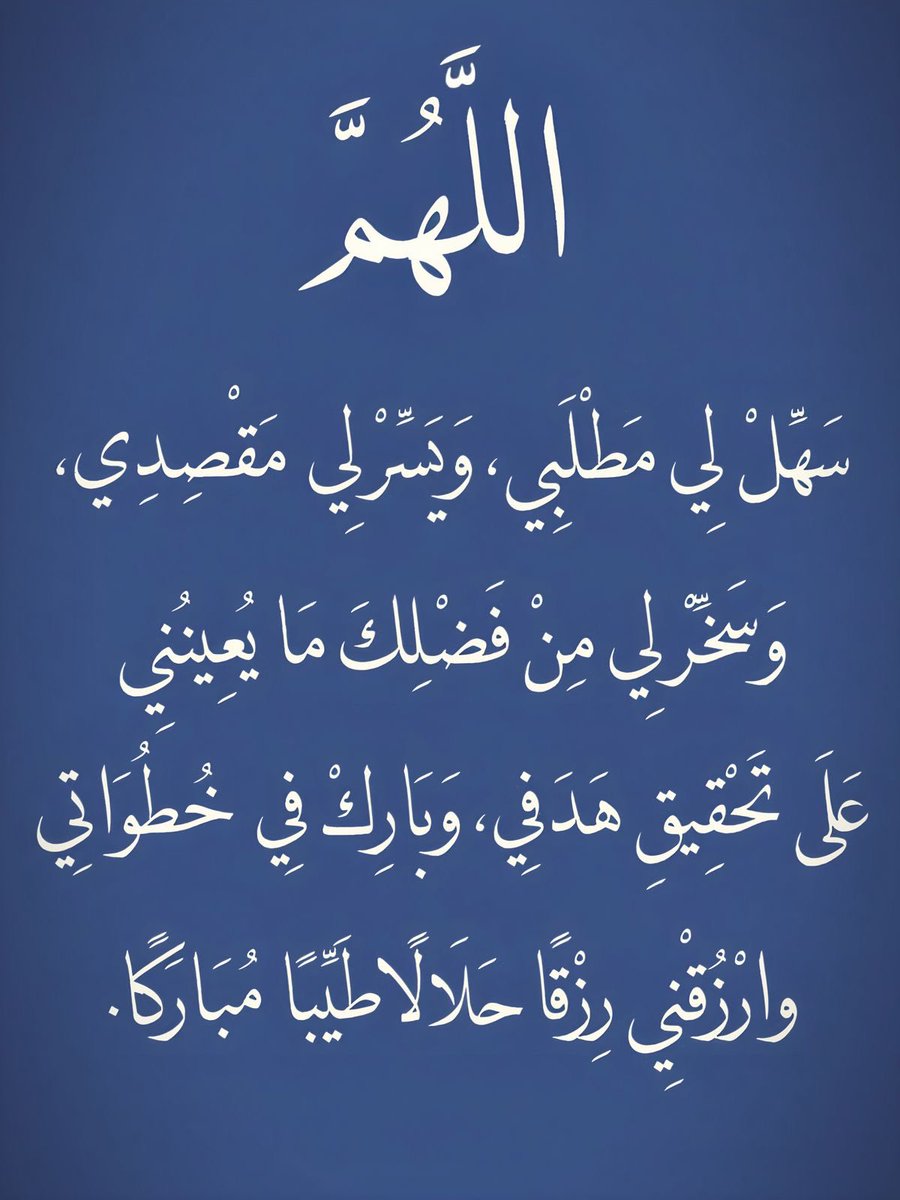 اللَّهُمَّ
سَهِّلْ لِي مَطْلَبِي، وَيَسِّرْ لِي مَقْصِدِي،
وَسَخِّرْ لِي مِنْ فَضْلِكَ مَا يُعِينُنِي
عَلَى تَحْقِيقِ هَدَفِي، وَبَارِكْ فِي خُطُوَاتِي
وارْزُقْنِي رِزْقًا حَلَالًا طَيِّبًا مُبَارَكًا.